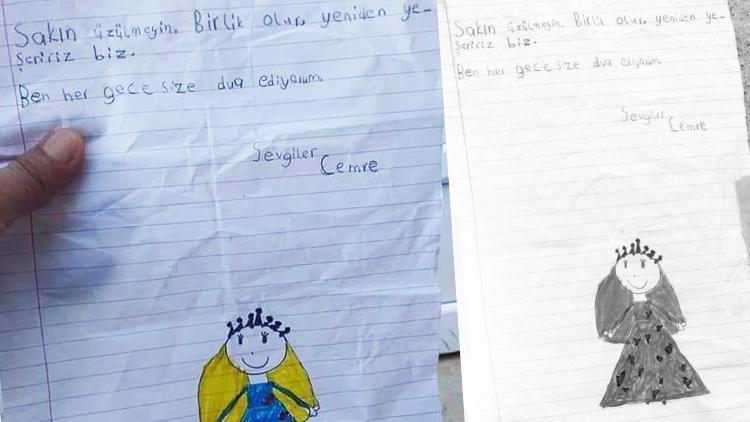 Sakın üzülmeyin. Birlik olur, yeniden ye-
şeririz biz.
Ben her gece size dua ediyorum.
Sevgiler
Cemre
Sakın üzülmeyin. Birlik olur, yeniden ye-
şeririz biz.
Ben her gece size dua ediyorum
Sevgiler
Cemre